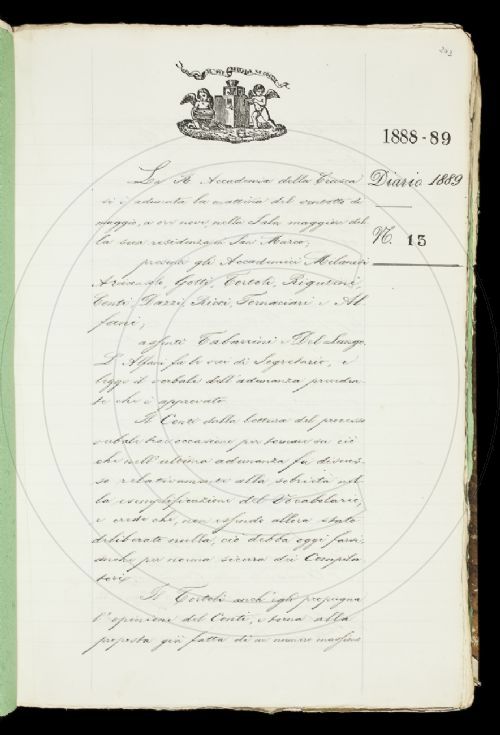 243
1888-89
Diario 1889
N. 13
La R. Accademia della Crusca
si è adunata la mattina del ventotto di
maggio, a ore nove, nella Sala maggiore del-
la sua residenza in San Marco;
presenti gli Accademici Milanesi
Arciconsolo, Gotti, Tortoli, Rigutini,
Conti, Dazzi, Ricci, Fornaciari e Al-
fani;
assenti Tabarrini e Del Lungo.
L'Alfani fa le veci di Segretario, e
legge il verbale dell'adunanza preceden-
te che è approvato.
Il Conti dalla lettura del processo
verbale trae occasione per tornare su ciò
che nell'ultima adunanza fu discus-
so relativamente alla sobrietà nel-
la esemplificazione del Vocabolario,
e crede che, non essendo allora stato
deliberato nulla, ciò debba oggi farsi,
anche per norma sicura dei Compila-
tori.
Il Tortoli anch'egli propugna
l'opinione del Conti, e torna alla
proposta già fatta di un numero massimo